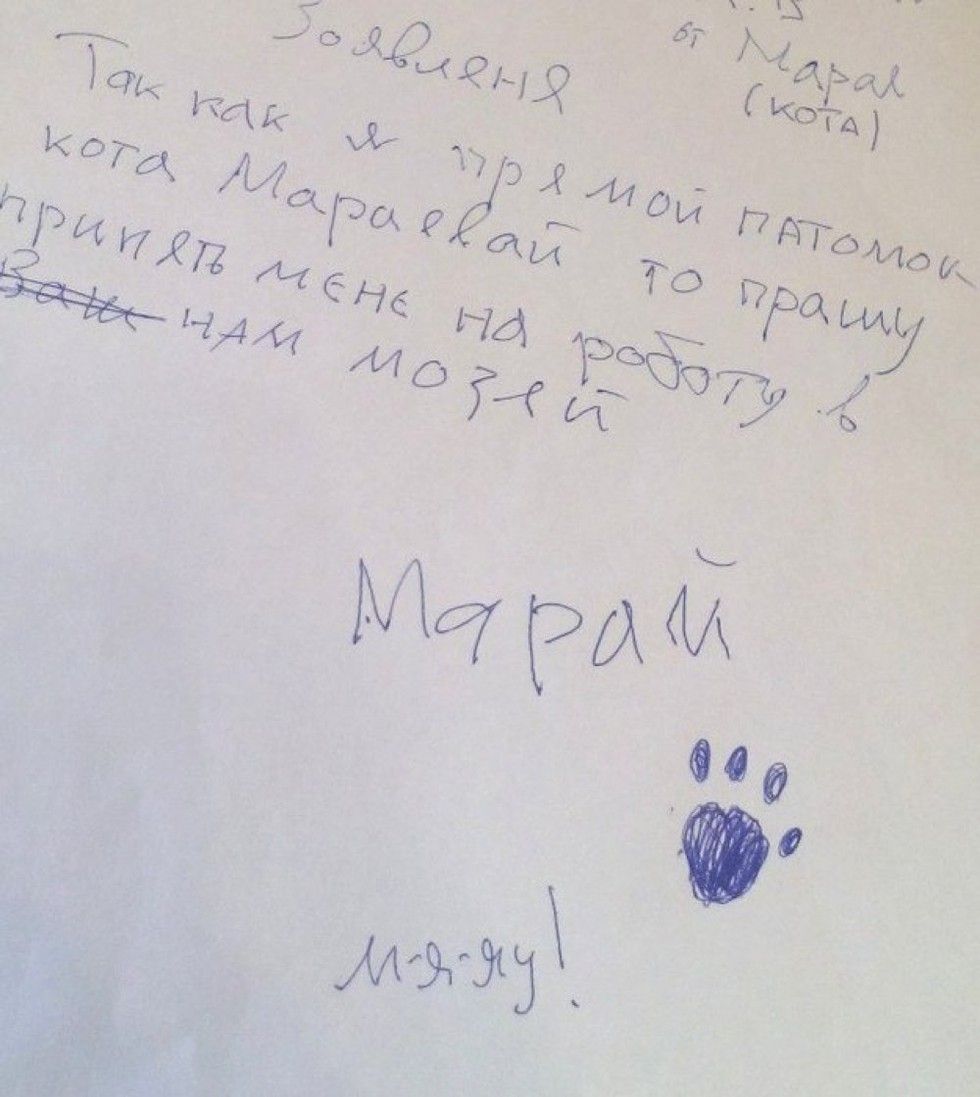 от Марая
(кота)
Зоявленя
Так как я прямой патомок
кота Мараевай то прашу
принять мене на роботу в
нам мозей
Марай
м-я-яу!